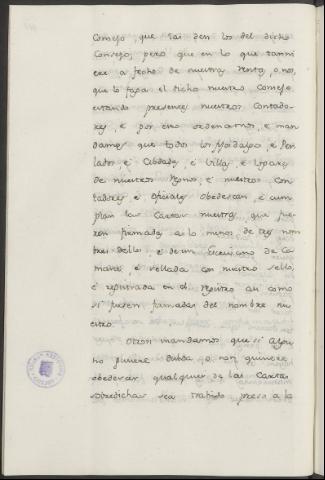 Consejo, que lai den los del dicho
Consejo, pero que en lo que tanni
ere a fecho de nuestra Renta, o nos,
que lo faga el dicho nuestro Consejo
estando presentes nuestros Contado-
res, e por esto ordenamos, e man
damos que todos los fijosdalgo, e Per
lados, e Cibdades, e Villas, e Logares
de nuestros Regnos, e nuestros Con
tadores, e Oficiales obedescan, e cum
plan las Cartas nuestras, que fue-
ren firmadas a lo menos de tres nom
bres dellos, e de un Escrivano de Ca
mara, e sellada con nuestro sello,
e registrada en el registro asi como
si fuesen firmadas del nombre nu
estro.
Otrosi mandamos que si algu
no pusiere dubda o non quisiere
obedescer qualquier de las Cartas
sobredichas sea trahido preso a la